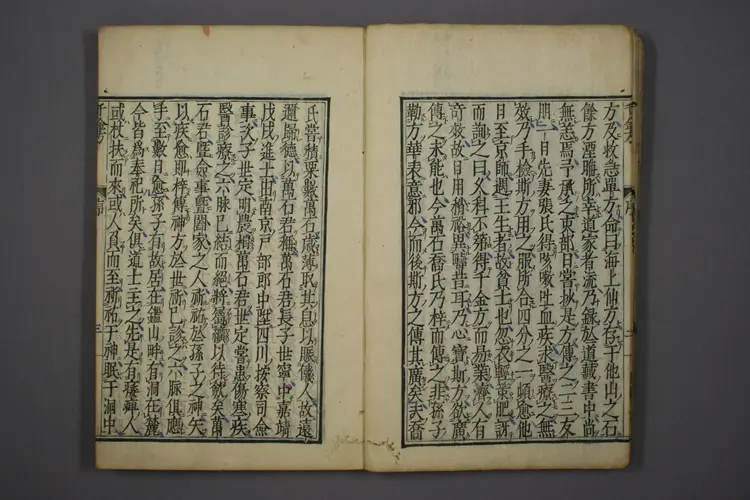 方及救急單方命曰海上仙方存于他山之石
餘方湮所幸道家者流乃錄於道藏書中尚
無恙焉予承乏東部日嘗抄是方傳之二三友
朋一日先妻張氏得咳嗽吐血疾求醫療之無
效乃手檢斯方用之服所合四分之一頓愈他
日至京師遇王生者故貧士也忽衣輕策肥訝
而詢之曰久科不第得千金方而業濟人有
奇效故日用稍裕異疇昔耳乃心寶斯方欲廣
傳之未能也今萬石喬氏乃梓而傳之非孫子
勒方華表意邪今而後斯方之傳其廣矣夫喬
氏嘗積粟數萬石歲薄取其息以賑人故遠
邇歸德以萬石君稱萬石君長子世寧中嘉靖
戊戌進士由南京戶部郎中陞四川按察司僉
事次子世定明農萬石君世定嘗患傷寒疾
醫診療之六脉已結而絕將以待矣萬
石君事醫家之人祈祐於孫子之神矢
以疾愈即梓傳神方於世祈已診之六脉俱應
手至數月愈孫子有故居在鑑山畔有洞在麓
今皆為奉祀所矣俱道士主之先是有痺人
或杖扶而來或人負而至祈祐于神眠于洞中
序
三